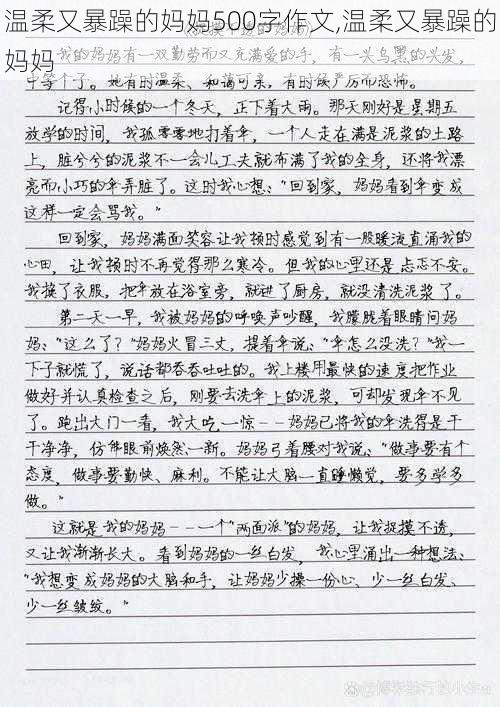 温柔又暴躁的妈妈500字作文,温柔又暴躁的
妈妈
我的妈妈有一双勤劳而又充满爱的手，有一头乌黑的头发，
中等个子。她有时温柔、和蔼可亲，有时候严厉而恐怖。
记得小时候的一个冬天，正下着大雨。那天刚好是星期五
放学的时间，我孤零零地打着伞，一个人走在满是泥浆的土路
上，脏兮兮的泥浆不一会儿工夫就布满了我的全身，还将我漂
亮而小巧的伞弄脏了。这时我心想：“回到家，妈妈看到伞变成
这样一定会骂我。”
回到家，妈妈满面笑容让我顿时感觉到有一股暖流直涌我的
心田，让我顿时不再觉得那么寒冷。但我的心里还是忐忑不安。
我换了衣服，把伞放在浴室旁，就进了厨房，就没清洗泥浆了。
第二天一早，我被妈妈的呼唤声吵醒，我朦胧着眼睛问妈
妈：“这么了？”妈妈火冒三丈，提着伞说：“伞怎么没洗？”我一
下子就慌了，说话都吞吞吐吐的。我上楼用最快的速度把作业
做好并认真检查之后，刚要去洗伞上的泥浆，可却发现伞不见
了。跑出大门一看，我大吃一惊——妈妈已将我的伞洗得是干
干净净，仿佛眼前焕然一新。妈妈弓着腰对我说：“做事要有个
态度，做事要勤快、麻利。不能让大脑一直睡懒觉，要多学多
做。”
这就是我的妈妈——一个“两面派”的妈妈，让我捉摸不透，
又让我渐渐长大。看到妈妈的一丝白发，我心里涌出一种想法：
“我想变成妈妈的大脑和手，让妈妈少操一份心、少一丝白发、
少一丝皱纹。”